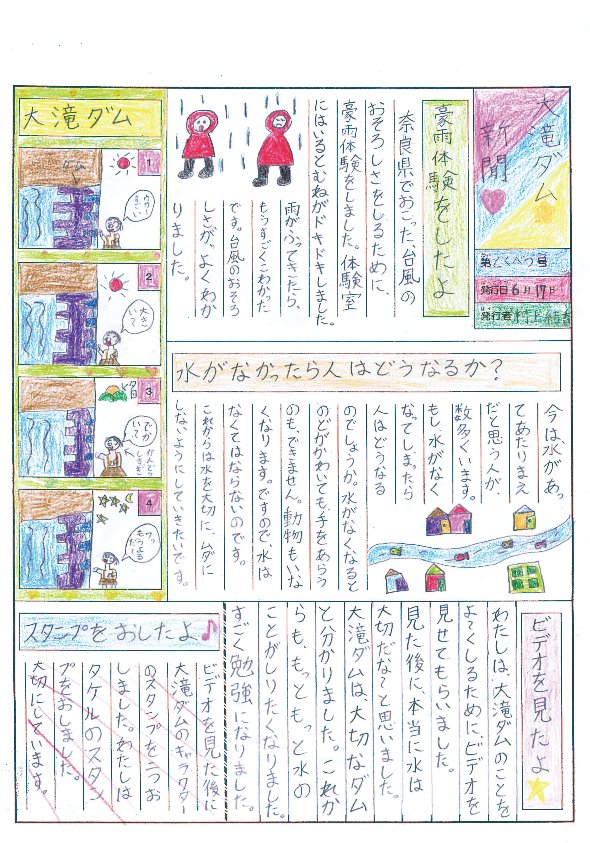 大滝ダム
新聞
第とくべつ号
発行日6月17日
発行者
豪雨体験をしたよ
奈良県でおこった、台風の
おそろしさをしるために、
豪雨体験をしました。体験室
にはいるとむねがドキドキしました。
雨がふってきたら、
もうすごくこわかった
です。台風のおそろ
しさが、よくわか
りました。
大滝ダム
1
2
3
4
水がなかったら人はどうなるか?
今は、水があっ
てあたりまえ
だと思う人が、
数多くいます。
もし、水がなく
なってしまったら
人はどうなる
のでしょうか。水がなくなると
のどがかわいても、手をあらう
のも、できません。動物もいな
くなります。ですので、水は
なくてはならないのです。
これからは水を大切に、ムダに
しないようにしていきたいです。
ビデオを見たよ
わたしは、大滝ダムのことを
よ〜くしるために、ビデオを
見せてもらいました。
見た後に、本当に水は
大切だな?と思いました。
大滝ダムは、大切なダム
と分かりました。これか
らも、もっともっと水の
ことがしりたくなりました。
すごく勉強になりました。
スタンプをおしたよ♪
ビデオを見た後に
大滝ダムのキャラクター
のスタンプを二つお
しました。わたしは
タケルのスタン
プをおしました。
大切にしています。